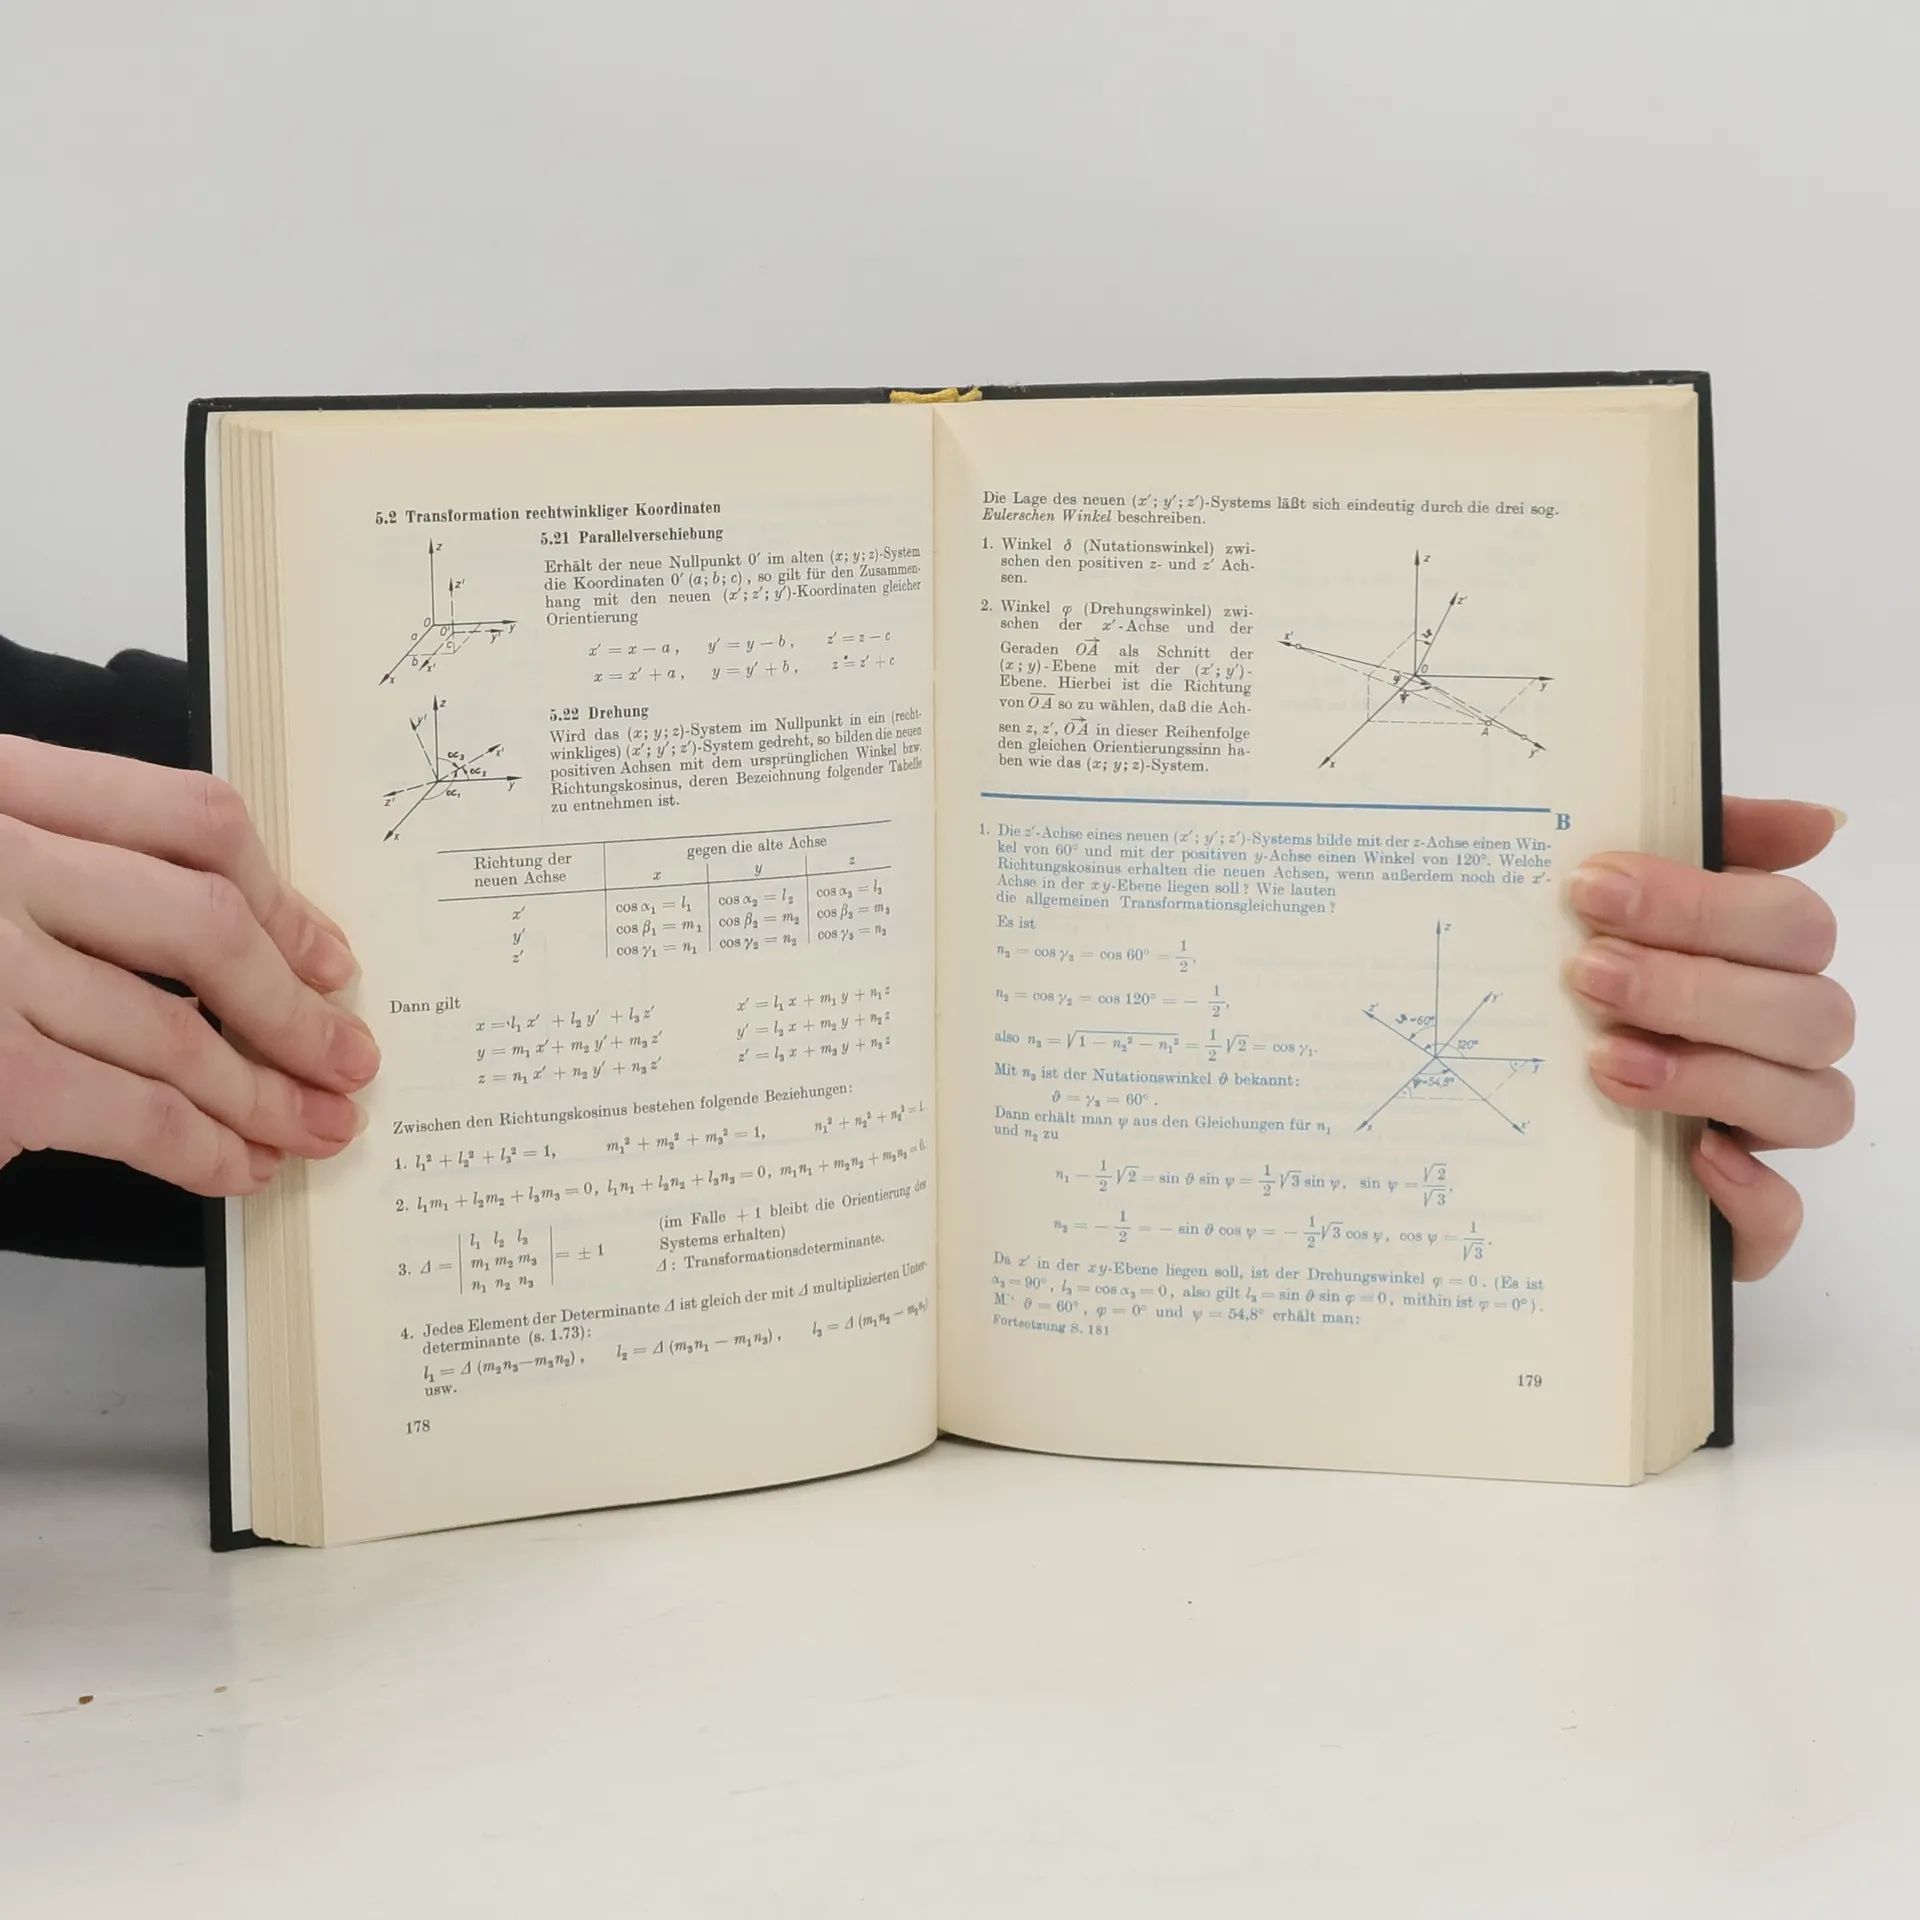 5.2 Transformation rechtwinkliger Koordinaten
5.21 Parallelverschiebung
Erhält der neue Nullpunkt 0′ im alten (x; y; z)-System
die Koordinaten 0′ (a; b; c), so gilt für den Zusammen-
hang mit den neuen (x′; z′; y′)-Koordinaten gleicher
Orientierung
x′ = x − a, y′ = y − b, z′ = z − c
x = x′ + a, y = y′ + b, z = z′ + c
z
z′
O
O′
a
b
c
y
y′
x′
x
5.22 Drehung
Wird das (x; y; z)-System im Nullpunkt in ein (recht-
winkliges) (x′; y′; z′)-System gedreht, so bilden die neuen
positiven Achsen mit dem ursprünglichen Winkel bzw.
Richtungskosinus, deren Bezeichnung folgender Tabelle
zu entnehmen ist.
z
y′
x′
α₃
α₂
α₁
y
z′
x
Richtung der neuen Achse
gegen die alte Achse
x y z
x′ cos α₁ = l₁ cos α₂ = l₂ cos α₃ = l₃
y′ cos β₁ = m₁ cos β₂ = m₂ cos β₃ = m₃
z′ cos γ₁ = n₁ cos γ₂ = n₂ cos γ₃ = n₃
Dann gilt
x = l₁ x′ + l₂ y′ + l₃ z′ x′ = l₁ x + m₁ y + n₁ z
y = m₁ x′ + m₂ y′ + m₃ z′ y′ = l₂ x + m₂ y + n₂ z
z = n₁ x′ + n₂ y′ + n₃ z′ z′ = l₃ x + m₃ y + n₃ z
Zwischen den Richtungskosinus bestehen folgende Beziehungen:
1. l₁² + l₂² + l₃² = 1, m₁² + m₂² + m₃² = 1, n₁² + n₂² + n₃² = 1.
2. l₁m₁ + l₂m₂ + l₃m₃ = 0, l₁n₁ + l₂n₂ + l₃n₃ = 0, m₁n₁ + m₂n₂ + m₃n₃ = 0.
3. Δ = | l₁ l₂ l₃ |
| m₁ m₂ m₃ | = ± 1
| n₁ n₂ n₃ |
(im Falle + 1 bleibt die Orientierung des
Systems erhalten)
Δ: Transformationsdeterminante.
4. Jedes Element der Determinante Δ ist gleich der mit Δ multiplizierten Unter-
determinante (s. 1.73):
l₁ = Δ (m₂n₃ − m₃n₂), l₂ = Δ (m₃n₁ − m₁n₃), l₃ = Δ (m₁n₂ − m₂n₁)
usw.
178
Die Lage des neuen (x′; y′; z′)-Systems läßt sich eindeutig durch die drei sog.
Eulerschen Winkel beschreiben.
1. Winkel δ (Nutationswinkel) zwi-
schen den positiven z- und z′ Ach-
sen.
2. Winkel φ (Drehungswinkel) zwi-
schen der x′-Achse und der
Geraden OA als Schnitt der
(x; y)-Ebene mit der (x′; y′)-
Ebene. Hierbei ist die Richtung
von OA so zu wählen, daß die Ach-
sen z, z′, OA in dieser Reihenfolge
den gleichen Orientierungssinn ha-
ben wie das (x; y; z)-System.
z
z′
x′
ϑ
O
φ
ψ
y
A
y′
x
B
1. Die z′-Achse eines neuen (x′; y′; z′)-Systems bilde mit der z-Achse einen Win-
kel von 60° und mit der positiven y-Achse einen Winkel von 120°. Welche
Richtungskosinus erhalten die neuen Achsen, wenn außerdem noch die x′-
Achse in der xy-Ebene liegen soll? Wie lauten
die allgemeinen Transformationsgleichungen?
Es ist
n₃ = cos γ₃ = cos 60° = 1/2,
n₂ = cos γ₂ = cos 120° = − 1/2,
also n₃ = √(1 − n₂² − n₁²) = 1/2 √2 = cos γ₁.
Mit n₃ ist der Nutationswinkel ϑ bekannt:
ϑ = γ₃ = 60°.
Dann erhält man ψ aus den Gleichungen für n₁
und n₂ zu
z
z′
y′
ϑ=60°
120°
y
ψ=54,8°
x
x′
n₁ − 1/2 √2 = sin ϑ sin ψ = 1/2 √3 sin ψ, sin ψ = √2/√3,
n₂ = − 1/2 = − sin ϑ cos ψ = − 1/2 √3 cos ψ, cos ψ = 1/√3.
Da x′ in der xy-Ebene liegen soll, ist der Drehungswinkel φ = 0. (Es ist
α₃ = 90°, l₃ = cos α₃ = 0, also gilt l₃ = sin ϑ sin φ = 0, mithin ist φ = 0°).
ϑ = 60°, φ = 0° und ψ = 54,8° erhält man:
Fortsetzung S. 181
179